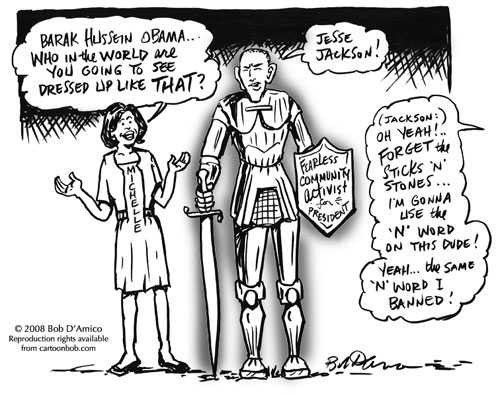 BARAK HUSSEIN OBAMA...
WHO IN the WORLD are
YOU GOING TO SEE
DRESSED UP LIKE THAT?
JESSE
JACKSON!
(JACKSON:)
OH YEAH!..
FORGET the
STICKS 'N'
STONES...
I'M GONNA
USE the
'N' WORD
ON THIS DUDE!
YEAH... the SAME
'N' WORD I
BANNED!
MICHELLE
FEARLESS
COMMUNITY
ACTIVIST
for
PRESIDENT
© 2008 Bob D'Amico
Reproduction rights available
from cartoonbob.com